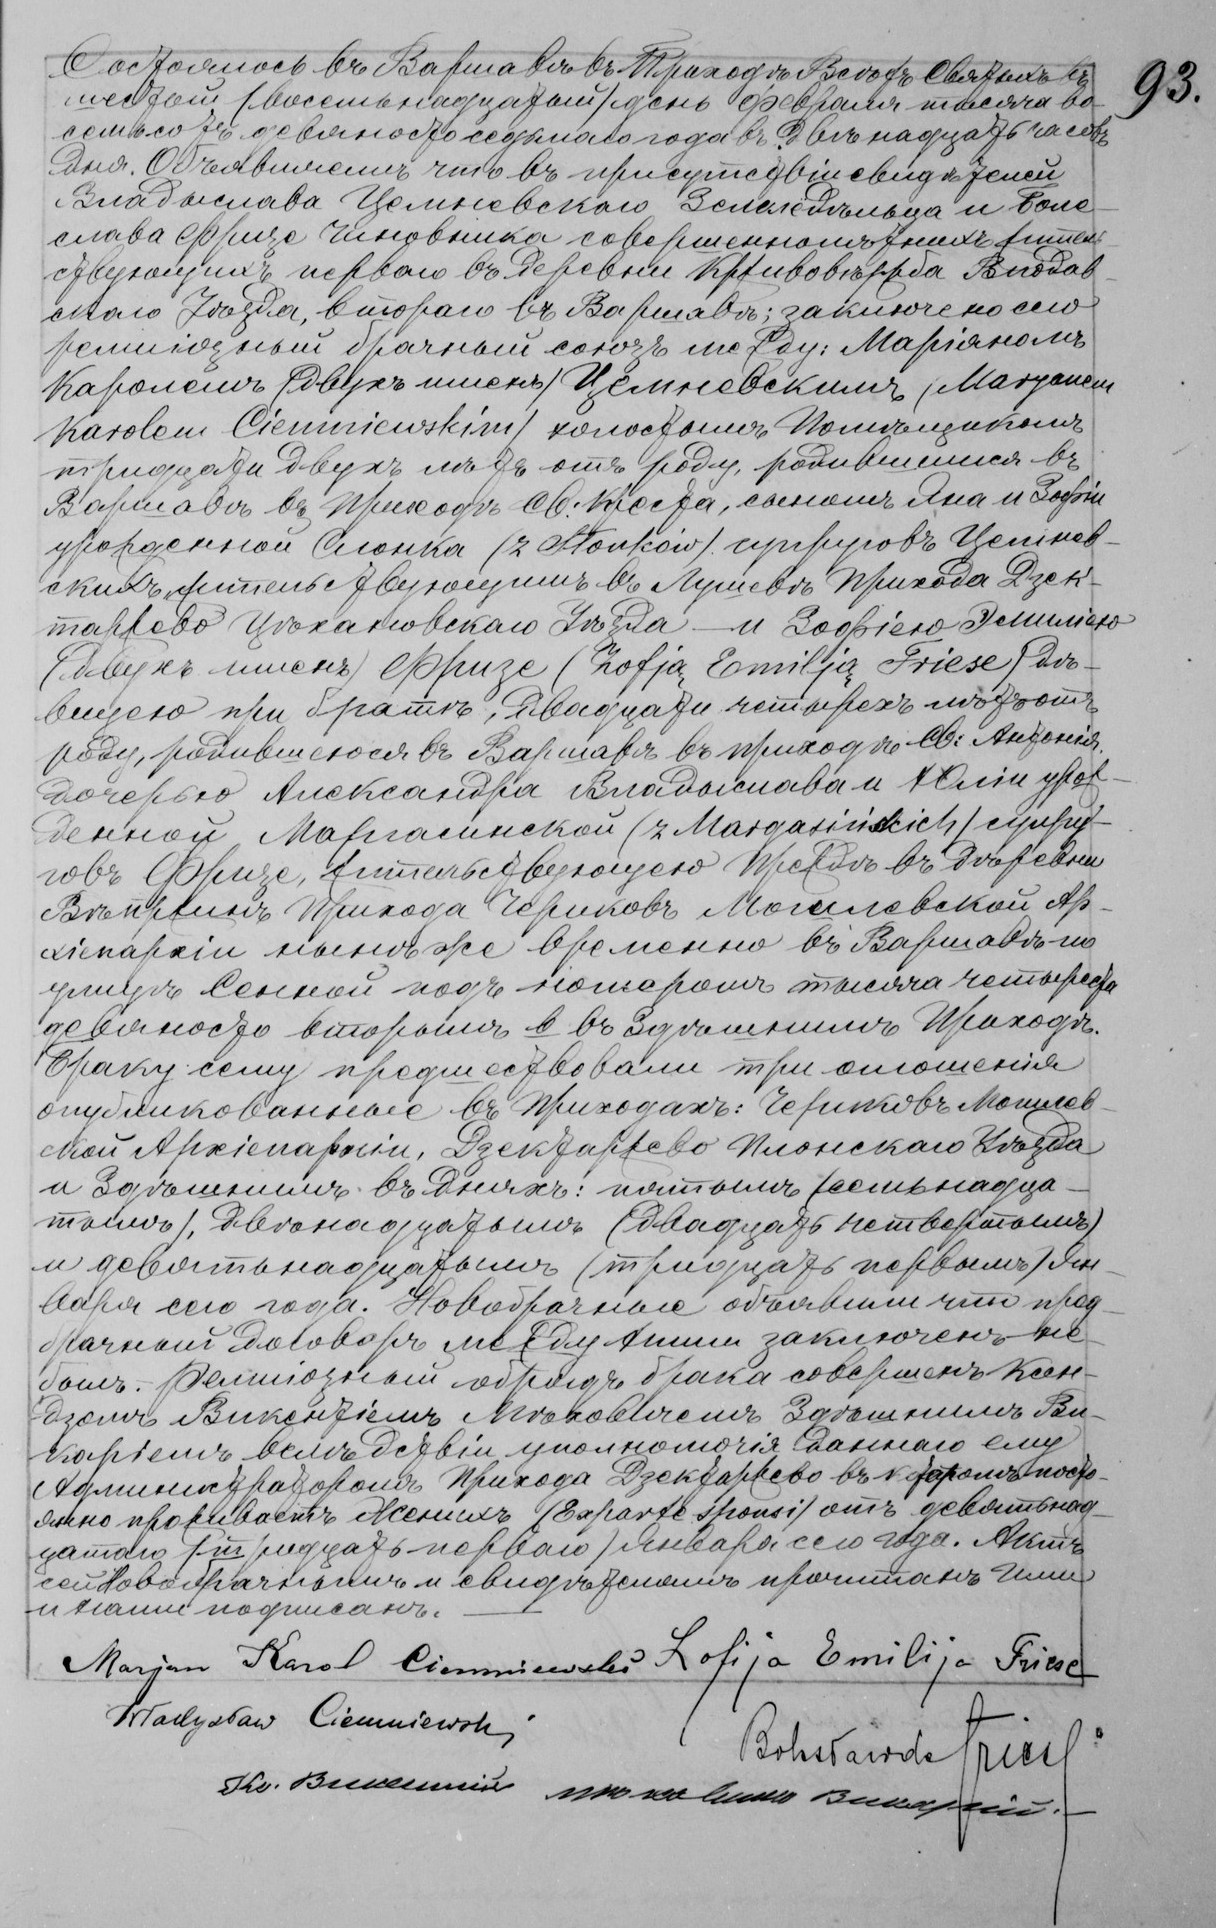 93.
Состоялось въ Варшавѣ въ Приходѣ Всѣхъ Святыхъ въ
шестый /восемьнадцатый/ день Февраля тысяча во-
семьсотъ девяносто седьмаго года въ Двѣнадцать часовъ
Дня. Объявляемъ что въ присутствіи свидѣтелей
Владыслава Цемневскаго Земледѣльца и Боле-
слава Фризе Чиновника совершеннолѣтнихъ житель-
ствующихъ перваго въ деревни Кривовѣрба Влодав-
скаго Уѣзда, втораго въ Варшавѣ; заключено сего
религіозный брачный союзъ между: Маріяномъ
Каролемъ (двухъ именъ) Цемневскимъ (Maryanem
Karolem Ciemniewskim/ холостымъ Помѣщикомъ
тридцати двухъ лѣтъ отъ роду, родившимся въ
Варшавѣ въ Приходѣ Св. Креста, сыномъ Яна и Зофіи
урожденной Слонка (z Słonków/ супруговъ Цемнев-
скихъ, жительствующимъ въ Прихода Дзек-
таржево Цѣхановскаго Уѣзда — и Зофіею Эмиліею
(двухъ именъ) Фризе (Zofją Emilją Friese/ дѣ-
вицею при братѣ, двадцати четырехъ лѣтъ отъ
роду, родившеюся въ Варшавѣ въ приходѣ Св: Антонія,
дочерью Александра Владыслава и Юліи урож-
денной Маргасинской (z Margasińskich/ супру-
говъ Фризе, жительствующею прежде въ дѣревни
Прихода Чериковъ Могилевской Ар-
хіепархіи нынѣ же временно въ Варшавѣ по
улицѣ Сенной подъ номеромъ тысяча четыреста
девяносто вторымъ в въ Здѣшнимъ Приходѣ.
Браку сему предшествовали три оглошенія
опубликованные въ Приходахъ: Чериковъ Могилев-
ской Архіепархіи, Дзектаржево Плонскаго Уѣзда
и Здѣшнимъ въ дняхъ: пятымъ /семьнадца-
тымъ/, двѣнадцатымъ (двадцать четвертымъ)
и девятьнадцатымъ (тридцать первымъ) Ян-
варя сего года. Новобрачные объявили что пред-
брачный договоръ между ними заключенъ не
былъ. Религіозный обрядъ брака совершенъ Ксен-
дзомъ Викентіемъ Здѣшнимъ Ви-
каріемъ вслѣдствіи уполномочія даннаго ему
Администраторомъ Прихода Дзектаржево въ которомъ посто-
янно проживаетъ Женихъ (Exparte sponsi/ отъ девятьнад-
цатаго /тридцать перваго/ Января сего года. Актъ
сей Новобрачнымъ и свидѣтелямъ прочитанъ Ими
и нами подписанъ. —
Marjan Karol Ciemniewski Zofija Emilija Friese
Władysław Ciemniewski
Bolesław de Friese
Кс. Викентій Викарій. —